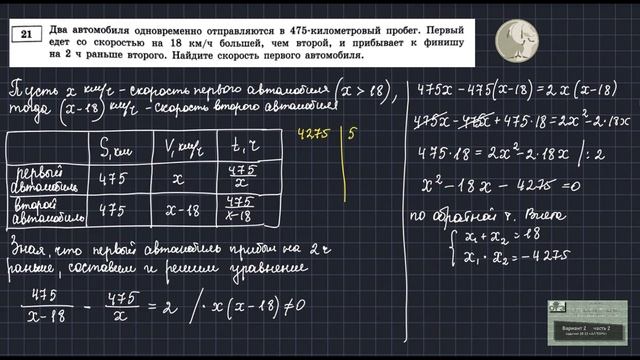 21
Два автомобиля одновременно отправляются в 475-километровый пробег. Первый
едет со скоростью на 18 км/ч большей, чем второй, и прибывает к финишу
на 2 ч раньше второго. Найдите скорость первого автомобиля.
Пусть x км/ч - скорость первого автомобиля (x > 18),
тогда (x-18) км/ч - скорость второго автомобиля
S, км V, км/ч t, ч
первый автомобиль 475 x 475/x
второй автомобиль 475 x-18 475/x-18
Зная, что первый автомобиль прибыл на 2 ч
раньше, составим и решим уравнение
475/x-18 - 475/x = 2 / · x(x-18) ≠ 0
4275 | 5
475x - 475(x-18) = 2x(x-18)
475x - 475x + 475·18 = 2x² - 2·18x
475·18 = 2x² - 2·18x /: 2
x² - 18x - 4275 = 0
по обратной т. Виета
{ x₁ + x₂ = 18
x₁ · x₂ = -4275
Вариант 2 часть 2